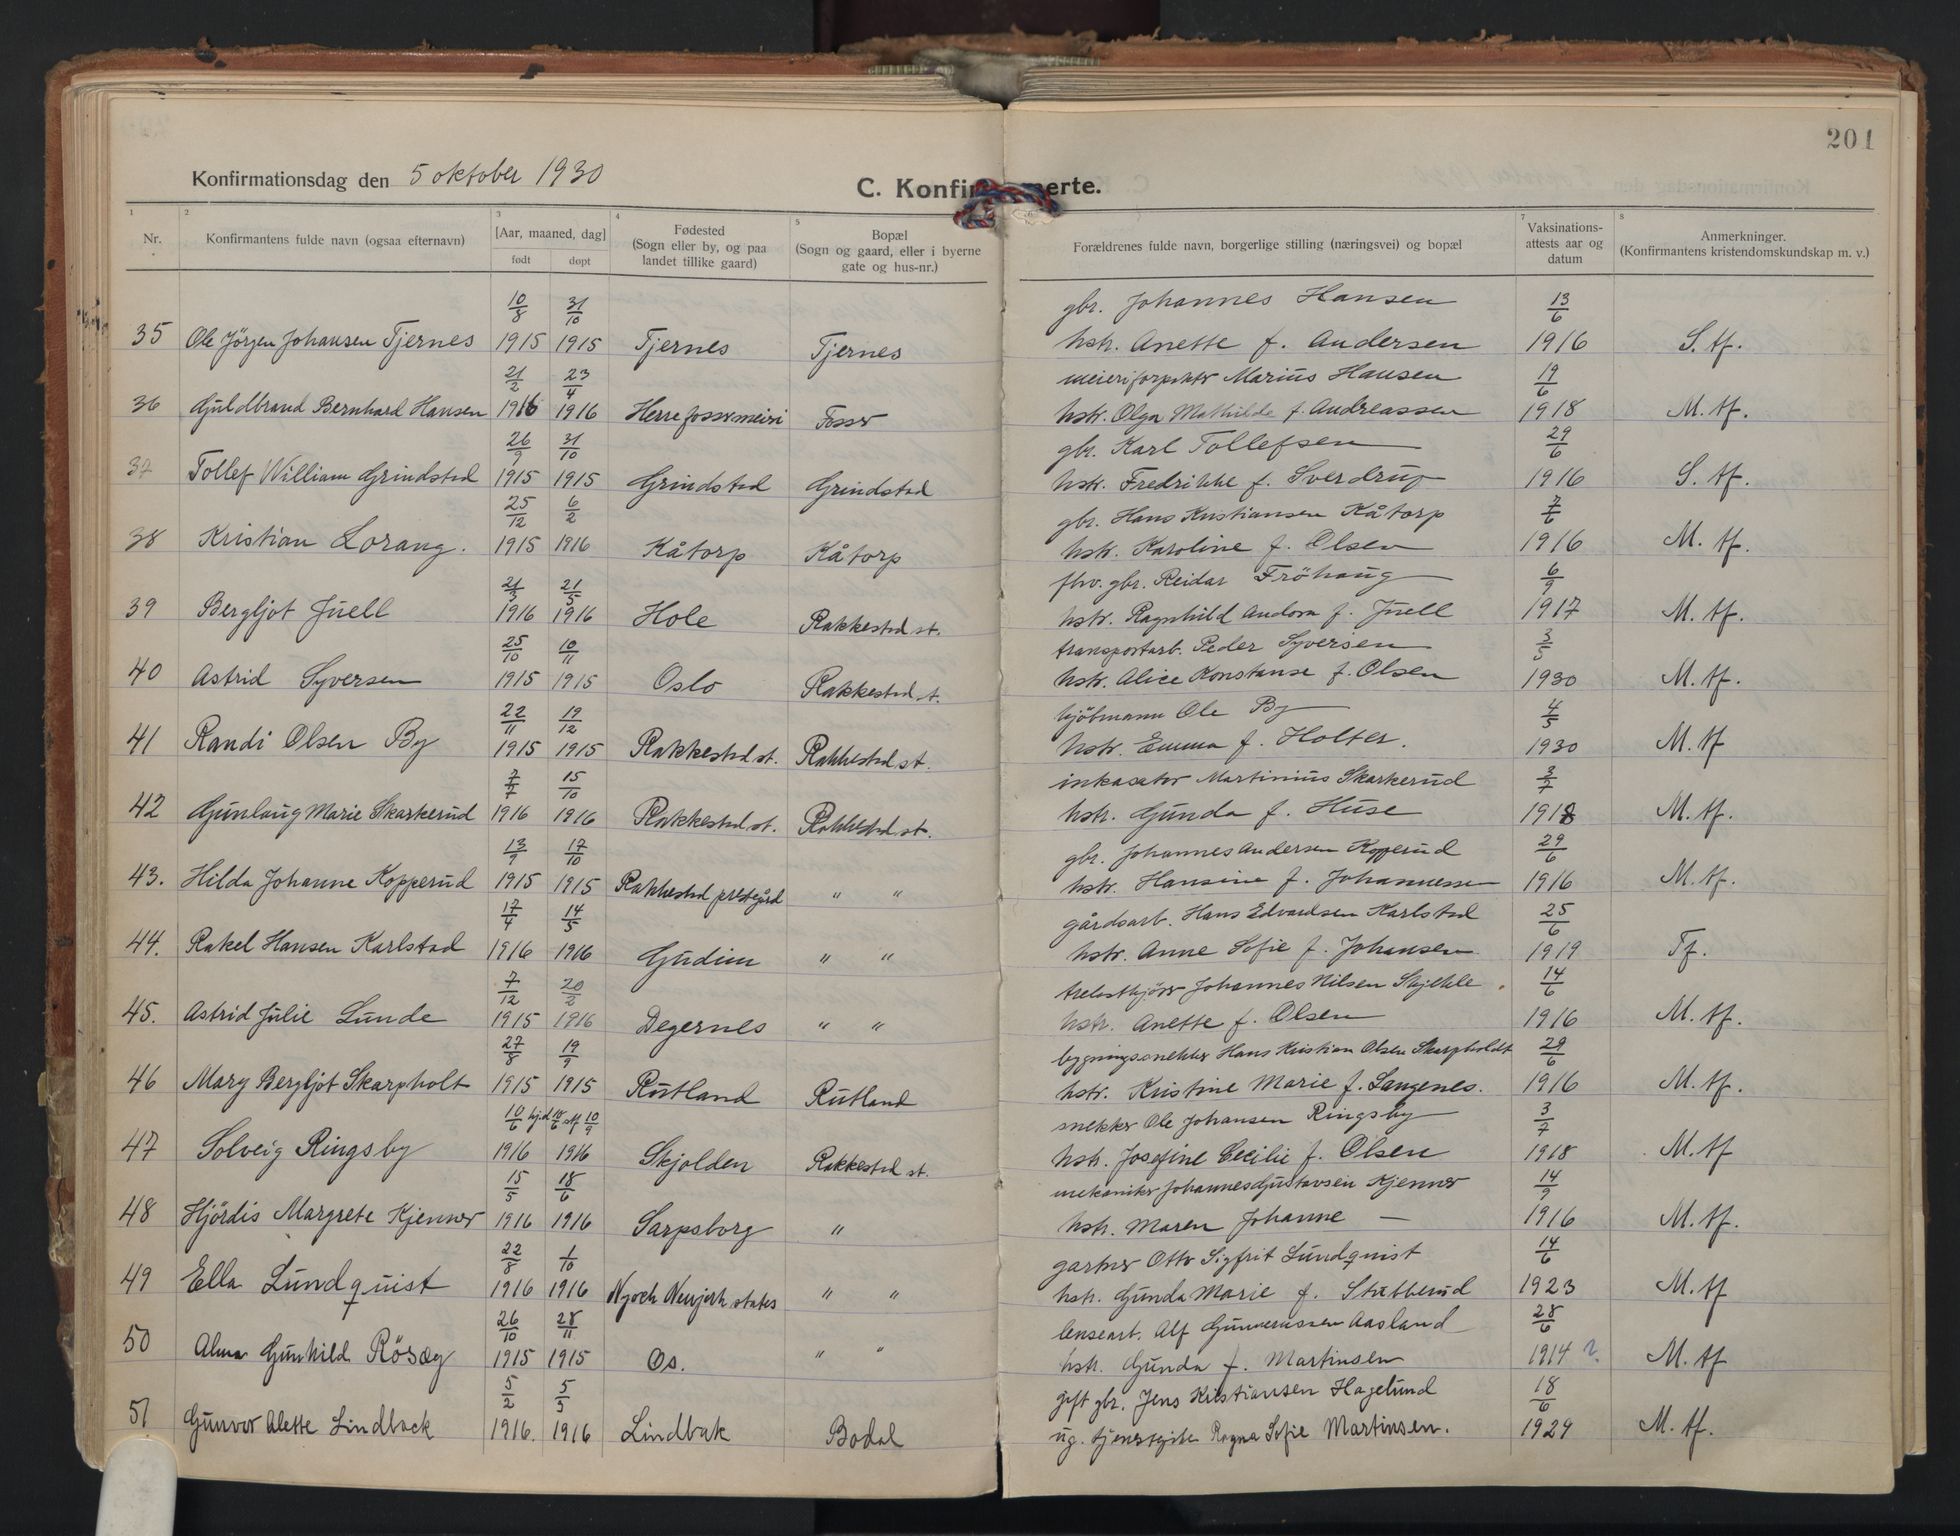 201
Konfirmationsdag den 5 oktober 1930
C. Konfir merte.
1 2 3 4 5 7 8
Nr.
Konfirmantens fulde navn (ogsaa efternavn)
[Aar, maaned, dag]
født døpt
Fødested
(Sogn eller by, og paa
landet tillike gaard)
Bopæl
(Sogn og gaard, eller i byerne
gate og hus-nr.)
Forældrenes fulde navn, borgerlige stilling (næringsvei) og bopæl
Vaksinations-
attests aar og
datum
Anmerkninger.
(Konfirmantens kristendomskundskap m. v.)
10/8 31/10 gbr. Johannes Hansen 13/6
35 Ole Jörgen Johansen Tjernes 1915 1915 Tjernes Tjernes hstr. Anette f. Andersen 1916 S. tf.
21/2 23/4 Marius Hansen 19/6
36 Guldbrand Bernhard Hansen 1916 1916 Herrefossmeiri Fosser hstr. Olga Mathilde f. Andreassen 1918 M. tf.
26/9 31/10 gbr. Karl Tollefsen 29/6
37 Tollef William Grindstad 1915 1915 Grindstad Grindstad hstr. Fredrikke f. Sverdrup 1916 S. tf.
25/12 6/2 gbr. Hans Kristiansen Kåtorp 7/6
38 Kristian Lorang. 1915 1916 Kåtorp Kåtorp hstr. Karoline f. Olsen 1916 M. tf.
21/3 21/5 fhv. gbr. Reidar Fröhaug 6/9
39 Bergljot Juell 1916 1916 Hole Rakkestad st. hstr. Ragnhild Andora f. Juell 1917 M. tf.
25/10 10/11 transportarb. Peder Syversen 3/5
40 Astrid Syversen 1915 1915 Oslo Rakkestad st. hstr. Alice Konstanse f. Olsen 1930 M. tf.
22/11 19/12 kjöbmann Ole By 4/5
41 Randi Olsen By 1915 1915 Rakkestad st. Rakkestad st. hstr. Emma f. Holter. 1930 M. tf
7/7 15/10 inkasator Martinius Skarkerud 3/7
42 Gunlaug Marie Skarkerud 1916 1916 Rakkestad st. Rakkestad st. hstr. Gunda f. Huse 1918 M. tf.
13/9 17/10 gbr. Johannes Andersen Kopperud 29/6
43. Hilda Johanne Kopperud 1915 1915 Rakkestad prestegård " " hstr. Hansine f. Johannessen 1916 M. tf.
17/4 14/5 gårdsarb. Hans Edvardsen Karlstad 25/6
44. Rakel Hansen Karlstad 1916 1916 Gudim " " hstr. Anne Sofie f. Johansen 1919 Tf.
7/12 20/2 Johannes Nilsen 14/6
45. Astrid Julie Lunde 1915 1916 Degernes " " hstr. Anette f. Olsen 1916 M. tf.
27/8 19/9 bygningssnekker Hans Kristian Olsen Skarpholdt 29/6
46 Mary Bergljot Skarpholt 1915 1915 Rutland Rutland hstr. Kristine Marie f. Langenes. 1916 M. tf.
10/6 hjd 18/6 stf 10/9 snekker Ole Johansen Ringsby 3/7
47 Solveig Ringsby 1916 1916 Skjolden Rakkestad st. hstr. Josefine Cecilie f. Olsen 1918 M. tf
15/5 18/6 mekaniker Johannes Gustavsen Kjenner 14/9
48 Hjördis Margrete Kjenner 1916 1916 Sarpsborg " hstr. Maren Johanne — 1916 M. tf.
22/8 1/10 gartner Otto Sigfrit Lundquist 14/6
49 Ella Lundquist 1916 1916 " " hstr. Gunda Marie f. Stubberud 1923 M. tf
26/10 28/11 lensearb. Alf Gunnerussen Aasland 28/6
50 Alma Gunhild Rösæg 1915 1915 Os. " " hstr. Gunda f. Martinsen 1914 ? M. tf
5/2 5/5 gift gbr. Jens Kristiansen Hagelund 18/6
51 Gunvor Alette Lindback 1916. 1916 Lindbak Bodal ug. tjenestpike Ragna Sofie Martinsen. 1929 M. tf.